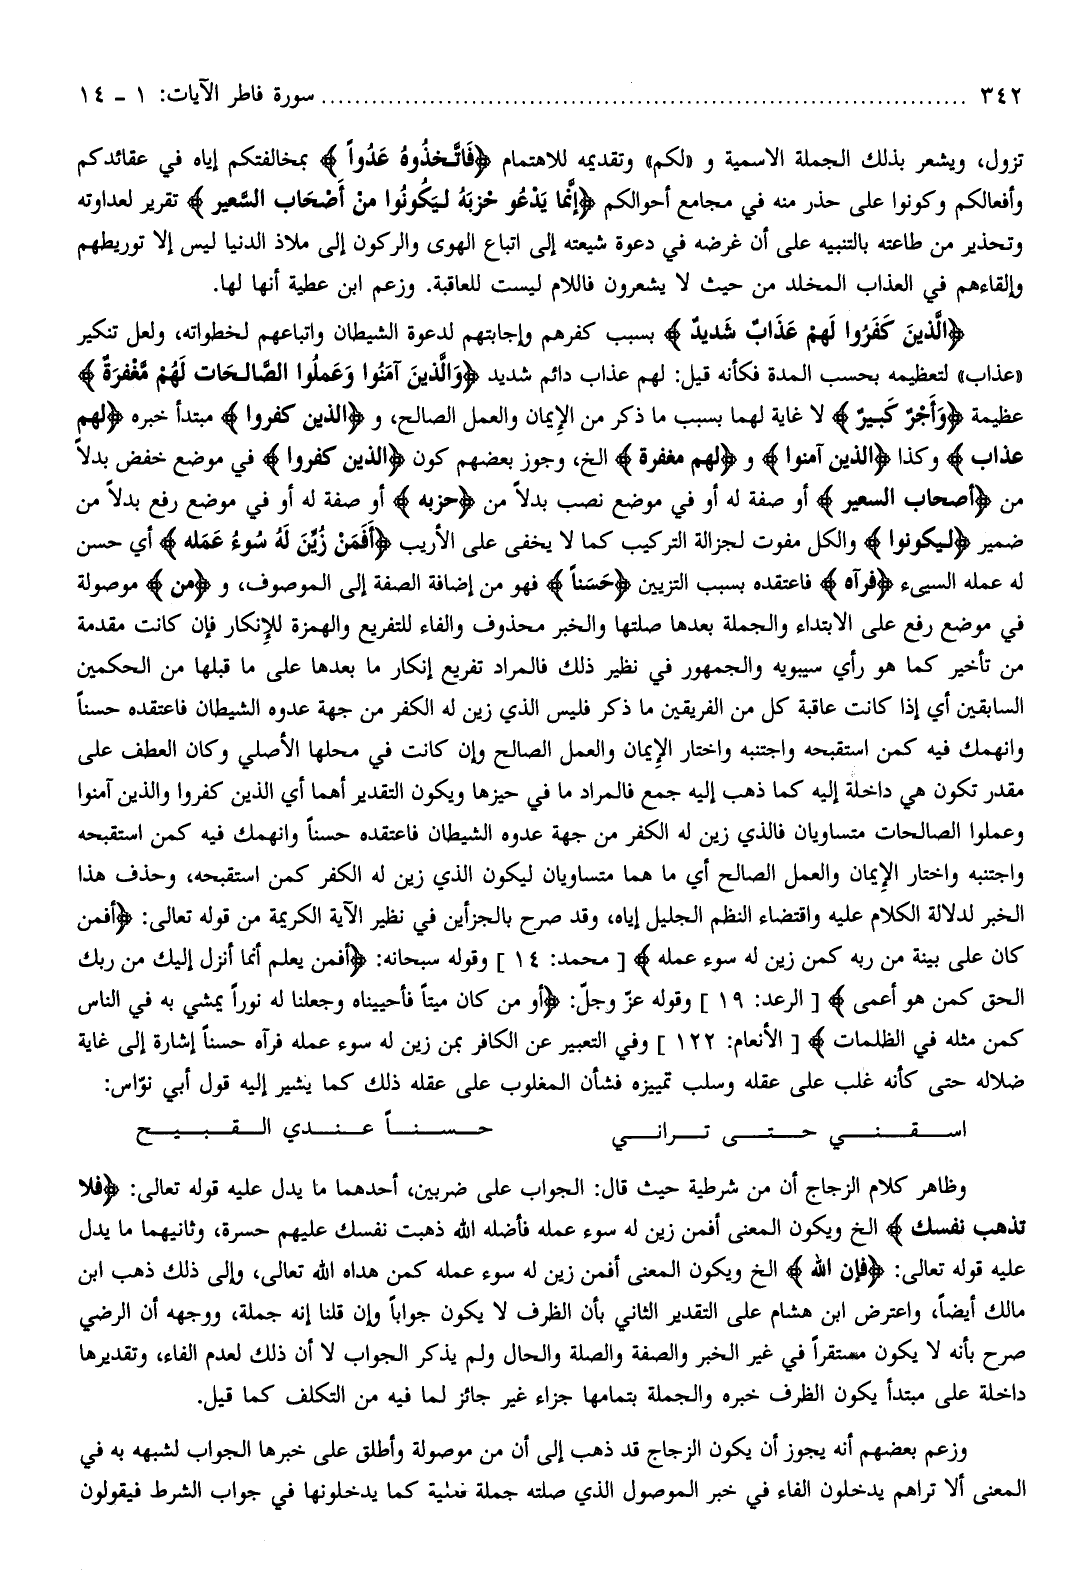 ٣٤٢ ........................................................ سورة فاطر الآيات: ١ - ١٤
تزول، ويشعر بذلك الجملة الاسمية و «لكم» وتقديمه للاهتمام ﴿فَاتَّخذُوهُ عَدُواً﴾ بمخالفتكم إياه في عقائدكم
وأفعالكم وكونوا على حذر منه في مجامع أحوالكم ﴿إنَّما يَدْعُو حْزبَهُ ليَكُونُوا منْ أَصْحَاب السَّعير﴾ تقرير لعداوته
وتحذير من طاعته بالتنبيه على أن غرضه في دعوة شيعته إلى اتباع الهوى والركون إلى ملاذ الدنيا ليس إلا توريطهم
وإلقاءهم في العذاب المخلد من حيث لا يشعرون فاللام ليست للعاقبة. وزعم ابن عطية أنها لها.
﴿الَّذينَ كَفَرُوا لَهمْ عَذَابٌ شَديدٌ﴾ بسبب كفرهم وإجابتهم لدعوة الشيطان واتباعهم لخطواته، ولعل تنكير
«عذاب» لتعظيمه بحسب المدة فكأنه قيل: لهم عذاب دائم شديد ﴿وَالَّذينَ آمَنُوا وَعَملُوا الصَّالحَات لَهُمْ مَّغْفرَةٌ﴾
عظيمة ﴿وَأَجْرٌ كَبيرٌ﴾ لا غاية لهما بسبب ما ذكر من الإيمان والعمل الصالح، و ﴿الذين كفروا﴾ مبتدأ خبره ﴿لهم
عذاب﴾ وكذا ﴿الذين آمنوا﴾ و ﴿لهم مغفرة﴾ الخ، وجوز بعضهم كون ﴿الذين كفروا﴾ في موضع خفض بدلاً
من ﴿أصحاب السعير﴾ أو صفة له أو في موضع نصب بدلاً من ﴿حزبه﴾ أو صفة له أو في موضع رفع بدلاً من
ضمير ﴿ليكونوا﴾ والكل مفوت لجزالة التركيب كما لا يخفى على الأريب ﴿أَفَمَنْ زُيِّنَ لَهُ سُوءُ عَمَله﴾ أي حسن
له عمله السيىء ﴿فرآه﴾ فاعتقده بسبب التزيين ﴿حَسَناً﴾ فهو من إضافة الصفة إلى الموصوف، و ﴿من﴾ موصولة
في موضع رفع على الابتداء والجملة بعدها صلتها والخبر محذوف والفاء للتفريع والهمزة للإنكار فإن كانت مقدمة
من تأخير كما هو رأي سيبويه والجمهور في نظير ذلك فالمراد تفريع إنكار ما بعدها على ما قبلها من الحكمين
السابقين أي إذا كانت عاقبة كل من الفريقين ما ذكر فليس الذي زين له الكفر من جهة عدوه الشيطان فاعتقده حسناً
وانهمك فيه كمن استقبحه واجتنبه واختار الإيمان والعمل الصالح وإن كانت في محلها الأصلي وكان العطف على
مقدر تكون هي داخلة إليه كما ذهب إليه جمع فالمراد ما في حيزها ويكون التقدير أهما أي الذين كفروا والذين آمنوا
وعملوا الصالحات متساويان فالذي زين له الكفر من جهة عدوه الشيطان فاعتقده حسناً وانهمك فيه كمن استقبحه
واجتنبه واختار الإيمان والعمل الصالح أي ما هما متساويان ليكون الذي زين له الكفر كمن استقبحه، وحذف هذا
الخبر لدلالة الكلام عليه واقتضاء النظم الجليل إياه، وقد صرح بالجزأين في نظير الآية الكريمة من قوله تعالى: ﴿أفمن
كان على بينة من ربه كمن زين له سوء عمله﴾ [ محمد: ١٤ ] وقوله سبحانه: ﴿أفمن يعلم أنما أنزل إليك من ربك
الحق كمن هو أعمى﴾ [ الرعد: ١٩ ] وقوله عزّ وجلّ: ﴿أو من كان ميتاً فأحييناه وجعلنا له نوراً يمشي به في الناس
كمن مثله في الظلمات﴾ [ الأنعام: ١٢٢ ] وفي التعبير عن الكافر بمن زين له سوء عمله فرآه حسناً إشارة إلى غاية
ضلاله حتى كأنه غلب على عقله وسلب تمييزه فشأن المغلوب على عقله ذلك كما يشير إليه قول أبي نوّاس:
اسـقـنـي حـتـى تـرانـي حـسـنـاً عـنـدي الـقـبـيـح
وظاهر كلام الزجاج أن من شرطية حيث قال: الجواب على ضربين، أحدهما ما يدل عليه قوله تعالى: ﴿فلا
تذهب نفسك﴾ الخ ويكون المعنى أفمن زين له سوء عمله فأضله الله ذهبت نفسك عليهم حسرة، وثانيهما ما يدل
عليه قوله تعالى: ﴿فإن الله﴾ الخ ويكون المعنى أفمن زين له سوء عمله كمن هداه الله تعالى، وإلى ذلك ذهب ابن
مالك أيضاً، واعترض ابن هشام على التقدير الثاني بأن الظرف لا يكون جواباً وإن قلنا إنه جملة، ووجهه أن الرضي
صرح بأنه لا يكون مستقراً في غير الخبر والصفة والصلة والحال ولم يذكر الجواب لا أن ذلك لعدم الفاء، وتقديرها
داخلة على مبتدأ يكون الظرف خبره والجملة بتمامها جزاء غير جائز لما فيه من التكلف كما قيل.
وزعم بعضهم أنه يجوز أن يكون الزجاج قد ذهب إلى أن من موصولة وأطلق على خبرها الجواب لشبهه به في
المعنى ألا تراهم يدخلون الفاء في خبر الموصول الذي صلته جملة فعلية كما يدخلونها في جواب الشرط فيقولون